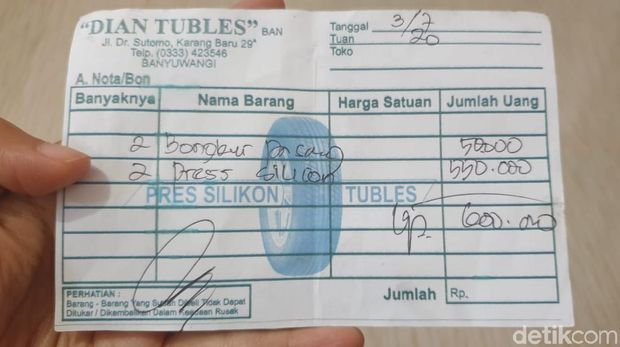 "DIAN TUBLES" BAN
Jl. Dr. Sutomo, Karang Baru 29ᴬ
Telp. (0333) 423546
BANYUWANGI
Tanggal 3/7
Tuan 20
Toko
A. Nota/Bon
Banyaknya Nama Barang Harga Satuan Jumlah Uang
2 Bongkar Pasang 50000
2 Press Silicon 550.000
PRES SILIKON TUBLES
Rp. 600.000
PERHATIAN :
Barang - Barang Yang Sudah Dibeli Tidak Dapat
Ditukar / Dikembalikan Dalam Keadaan Rusak
Jumlah Rp.
detikcom